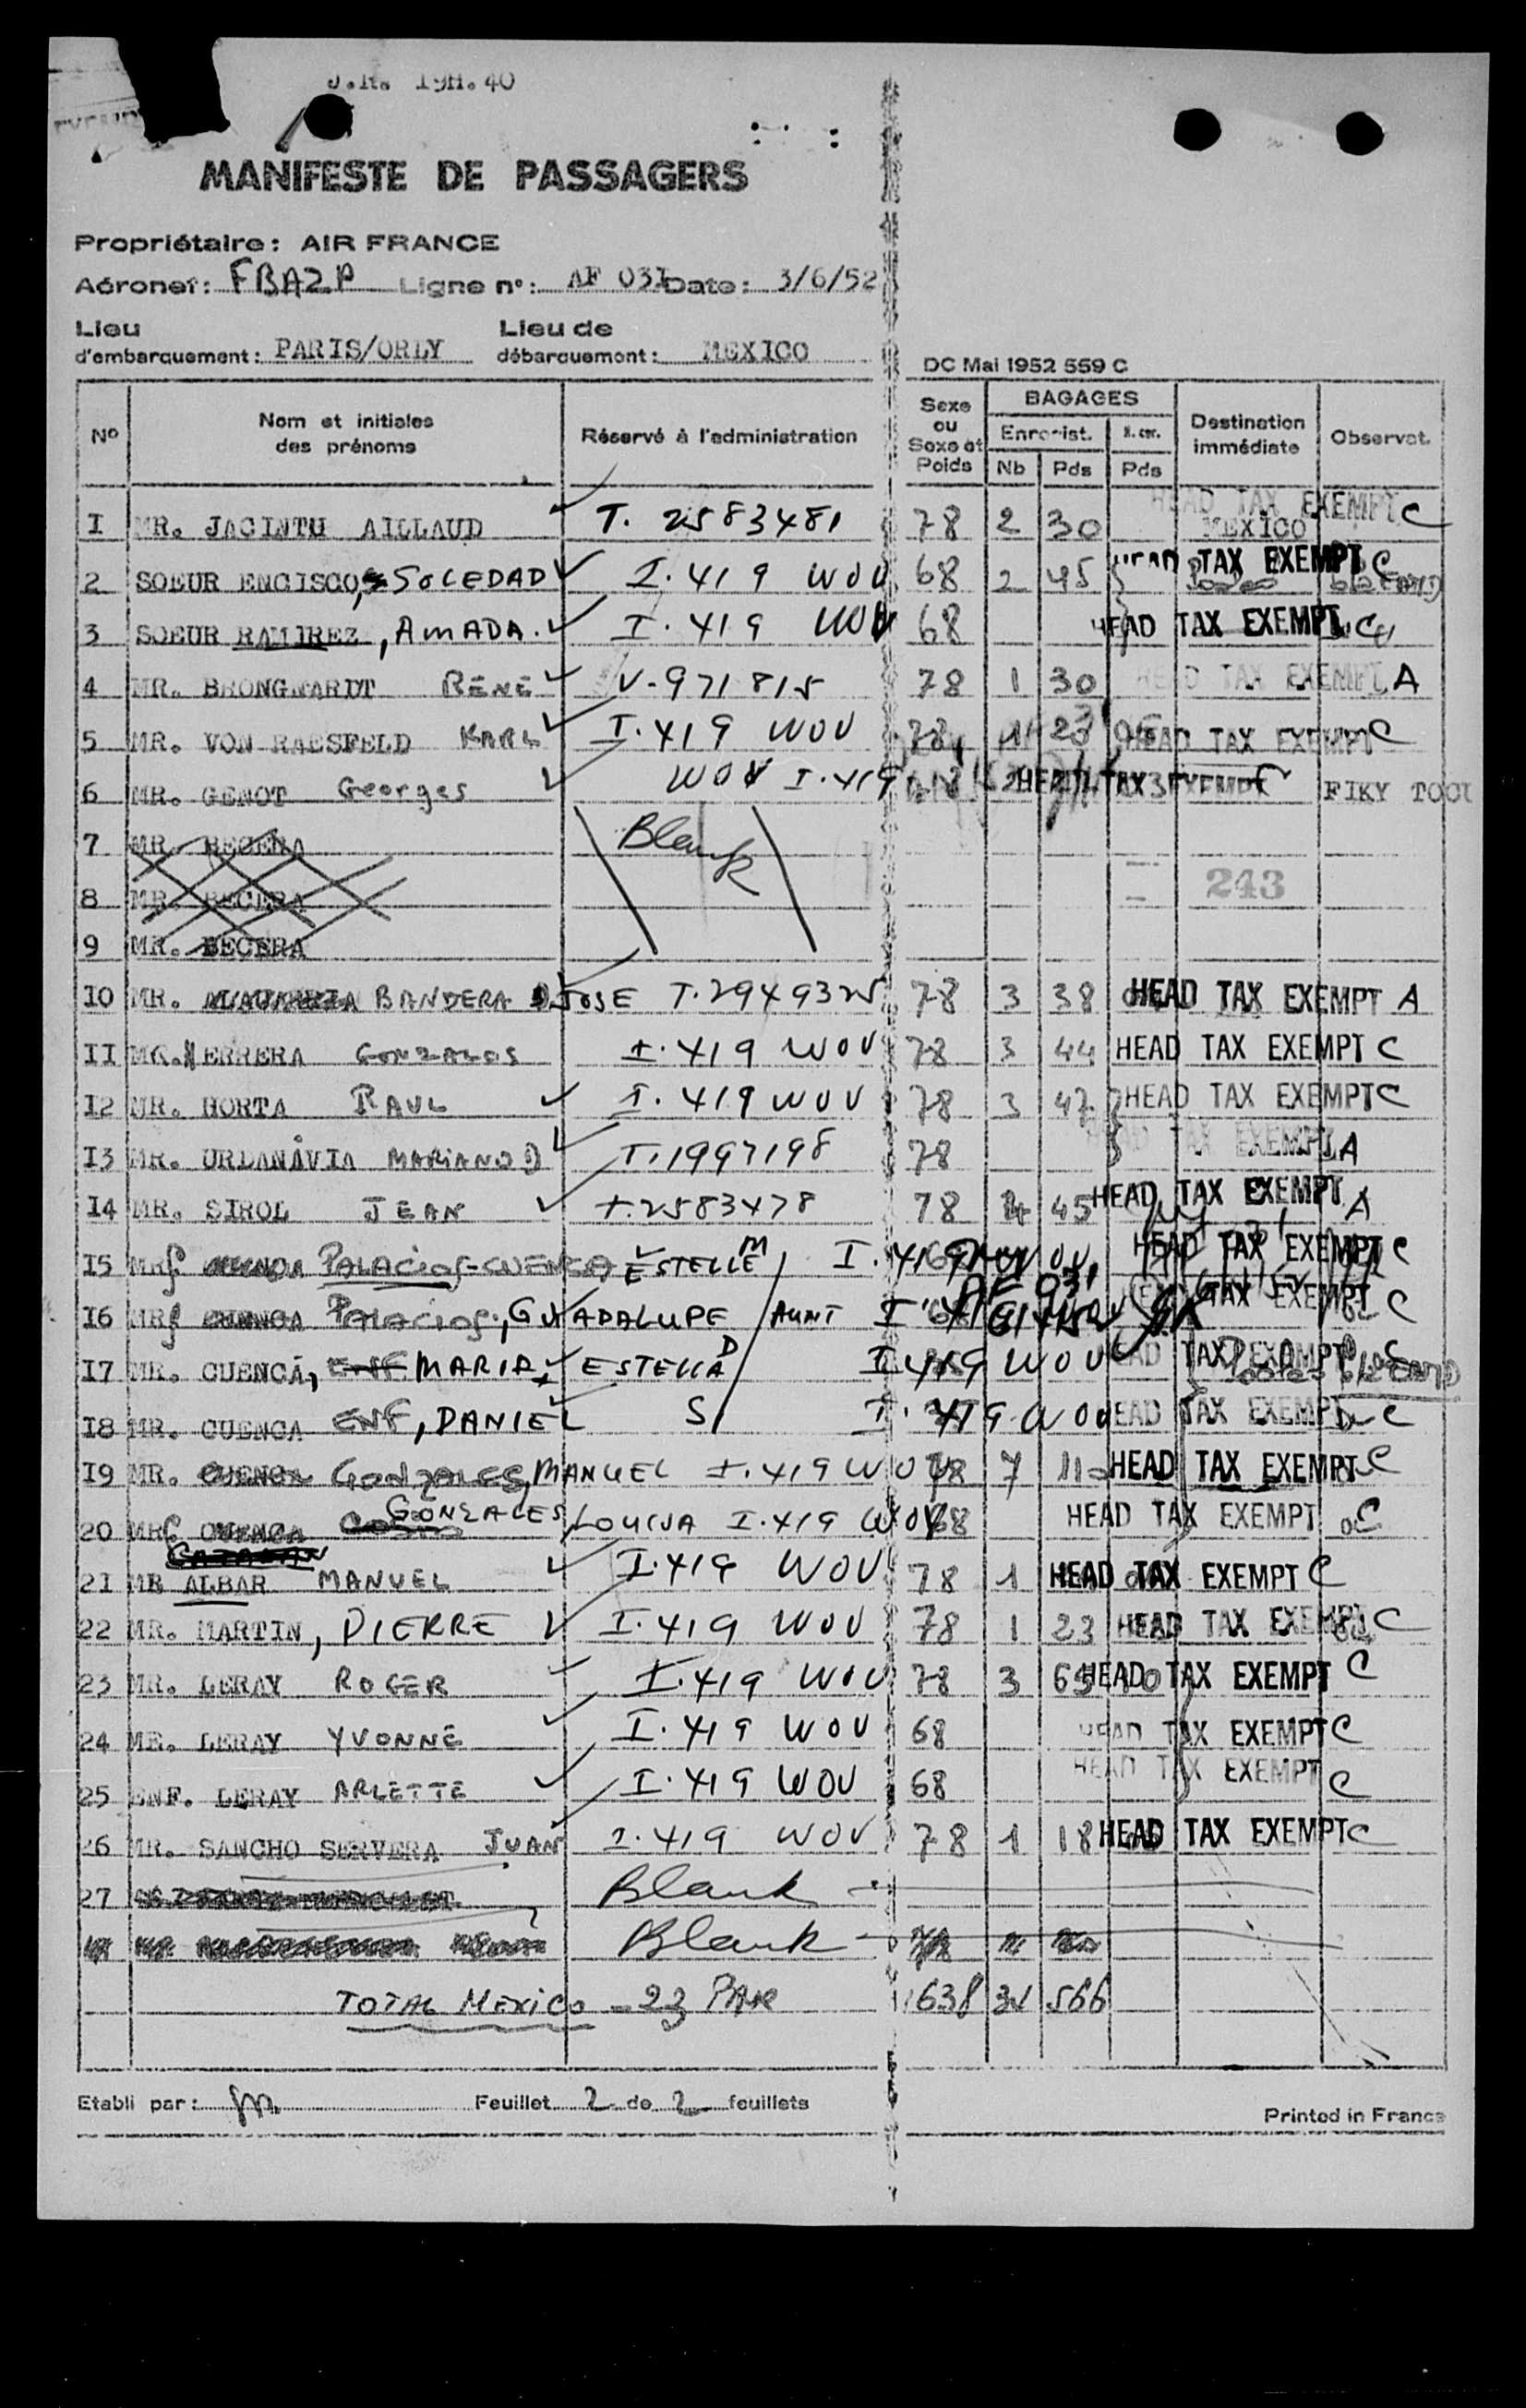 J.R. 19H.40
MANIFESTE DE PASSAGERS
Propriétaire: AIR FRANCE
Aéronef: FBAZP Ligne n°: AF 031 Date: 3/6/52
Lieu d'embarquement: PARIS/ORLY Lieu de débarquement: MEXICO
DC Mai 1952 559 C
N° Nom et initiales des prénoms Réservé à l'administration Sexe ou Sexe et Poids BAGAGES Enregist. Nb Pds Pds Destination immédiate Observat.
I MR. JACINTU AILLAUD T. 2583481 78 2 30 MEXICO HEAD TAX EXEMPT C
2 SOEUR ENCISCO, SOLEDAD I. 419 WOV 68 2 45 HEAD TAX EXEMPT C
3 SOEUR RAMIREZ, AMADA. I. 419 WOV 68 HEAD TAX EXEMPT C
4 MR. BRONGNARDT RENE V-971815 78 1 30 HEAD TAX EXEMPT A
5 MR. VON RAESFELD KARL I. 419 WOV 78 1 23 HEAD TAX EXEMPT C
6 MR. GENOT Georges WOV I. 419 HEAD TAX EXEMPT C FIKY
7 MR. BECERA Blank
8 MR. BECERA 243
9 MR. BECERA
IO MR. BANDERA JOSE T. 2949325 78 3 38 HEAD TAX EXEMPT A
II MR. HERRERA GONZALOS I. 419 WOV 78 3 44 HEAD TAX EXEMPT C
I2 MR. HORTA RAUL I. 419 WOV 78 3 47 HEAD TAX EXEMPT C
I3 MR. URLANAVIA MARIANO T. 1997198 78 HEAD TAX EXEMPT A
I4 MR. SIROL JEAN T. 2583478 78 45 HEAD TAX EXEMPT A
I5 PALACIOS-CUENCA ESTELLE M I. 419 WOV HEAD TAX EXEMPT C
I6 PALACIOS, GUADALUPE / AUNT I 419 WOV AF 031 TAX EXEMPT C
I7 MR. CUENCA, ENF MARIA ESTELLA D I 419 WOV HEAD TAX EXEMPT C
I8 MR. CUENCA ENF, DANIEL S I. 419 WOV HEAD TAX EXEMPT C
I9 MR. CUENCA GONZALES, MANUEL I. 419 WOV 78 7 HEAD TAX EXEMPT C
20 CUENCA GONZALES, LOUISA I. 419 WOV 68 HEAD TAX EXEMPT C
21 MR ALBAR MANUEL I. 419 WOV 78 1 HEAD TAX EXEMPT C
22 MR. MARTIN, PIERRE I. 419 WOV 78 1 23 HEAD TAX EXEMPT C
23 MR. LERAY ROGER I. 419 WOV 78 3 65 HEAD TAX EXEMPT C
24 MR. LERAY YVONNE I. 419 WOV 68 HEAD TAX EXEMPT C
25 ENF. LERAY ARLETTE I. 419 WOV 68 HEAD TAX EXEMPT C
26 MR. SANCHO SERVERA JUAN I. 419 WOV 78 1 18 HEAD TAX EXEMPT C
27 Blank
Blank
TOTAL MEXICO - 23 PAX 1638 566
Etabli par: Feuillet 2 de 2 feuillets
Printed in France